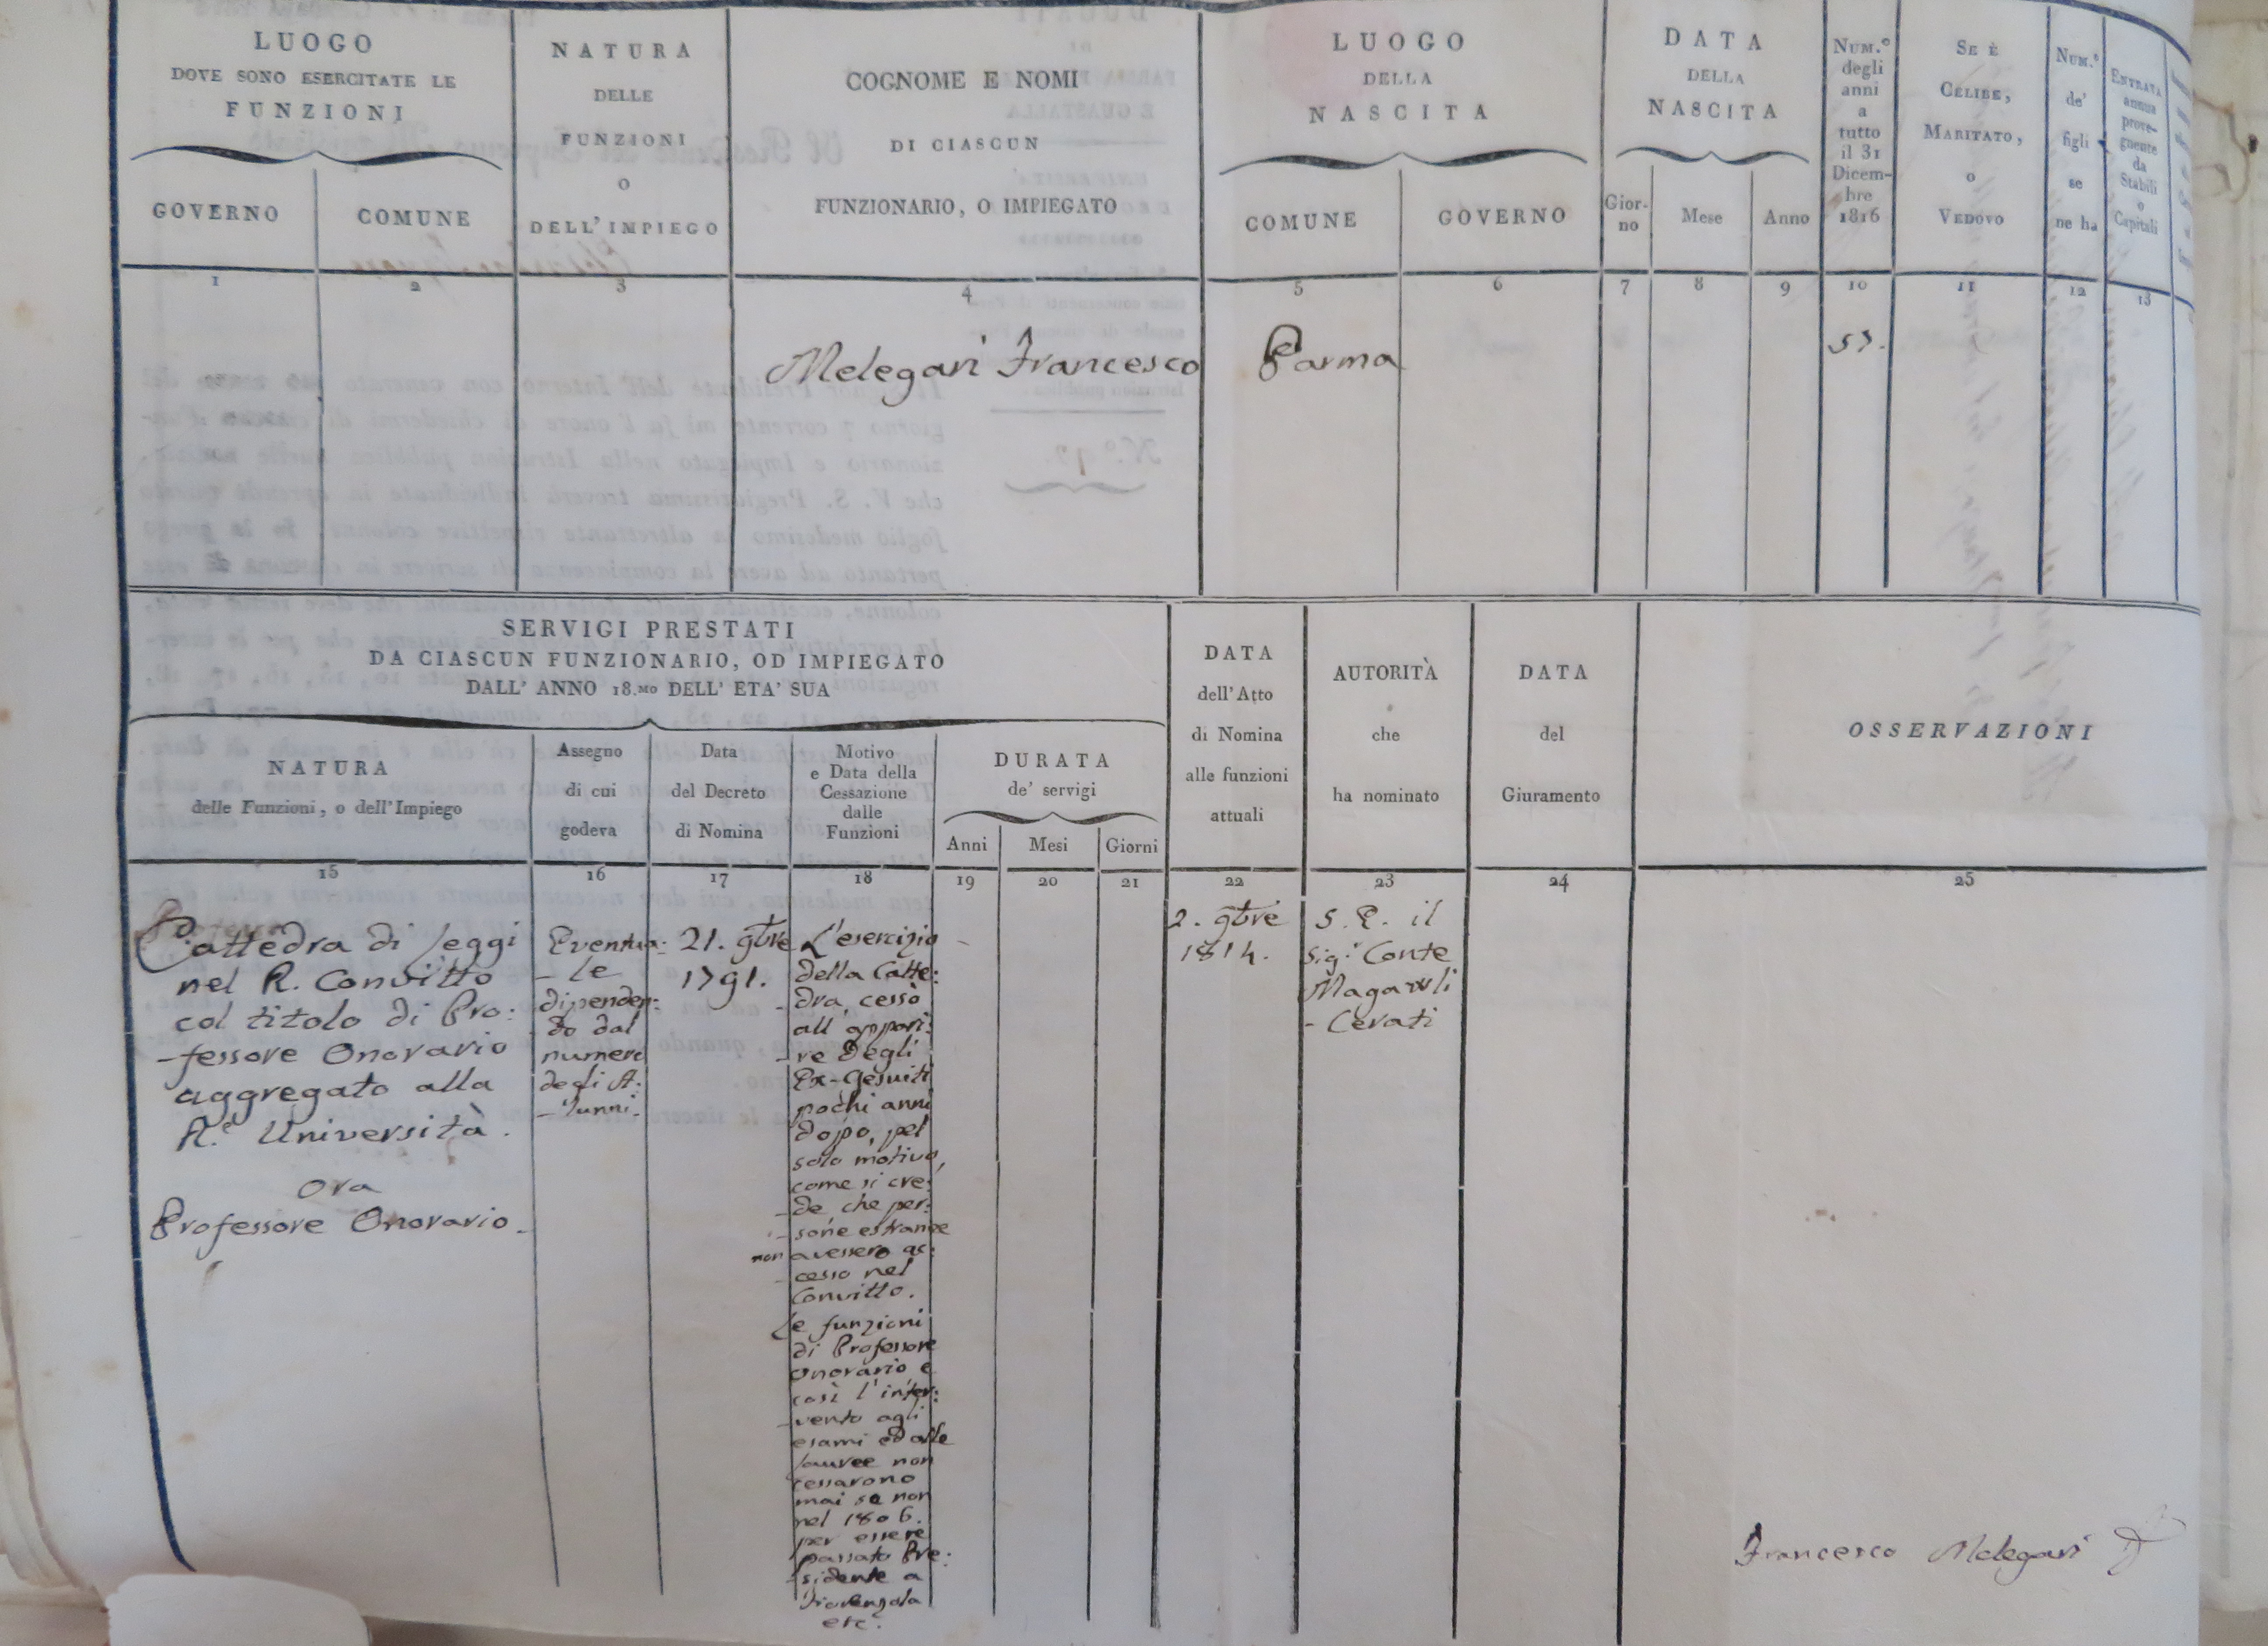 LUOGO
DOVE SONO ESERCITATE LE
FUNZIONI
GOVERNO
COMUNE
NATURA
DELLE
FUNZIONI
O
DELL'IMPIEGO
COGNOME E NOMI
DI CIASCUN
FUNZIONARIO, O IMPIEGATO
LUOGO
DELLA
NASCITA
COMUNE
GOVERNO
DATA
DELLA
NASCITA
Gior-
no
Mese
Anno
NUM.º
degli
anni
a
tutto
il 31
Dicem-
bre
1816
SE È
CELIBE,
MARITATO,
o
VEDOVO
NUM.º
de'
figli
se
ne ha
ENTRATA
annua
prove-
gnente
da
Stabili
o
Capitali
1 2 3 4 5 6 7 8 9 10 11 12 13
Melegari Francesco
Parma
57.
SERVIGI PRESTATI
DA CIASCUN FUNZIONARIO, OD IMPIEGATO
DALL' ANNO 18.MO DELL' ETA' SUA
NATURA
delle Funzioni, o dell'Impiego
Assegno
di cui
godeva
Data
del Decreto
di Nomina
Motivo
e Data della
Cessazione
dalle
Funzioni
DURATA
de' servigi
Anni
Mesi
Giorni
DATA
dell'Atto
di Nomina
alle funzioni
attuali
AUTORITÀ
che
ha nominato
DATA
del
Giuramento
OSSERVAZIONI
15 16 17 18 19 20 21 22 23 24 25
Cattedra di Leggi
nel R. Convitto
col titolo di Pro:
-fessore Onorario
aggregato alla
R.e Università.
ora
Professore Onorario.
Eventua:
-le
dipenden:
do dal
numero
degli A:
-lunni.
21. 9bre
1791.
L'esercizio
della Catte:
-dra, cessò
all'appari:
-re degli
Ex-Gesuiti
pochi anni
dopo, pel
solo motivo,
come si cre:
-de che per:
-sone estranee
non avessero ac:
-cesso nel
Convitto.
Le funzioni
di Professore
onorario e
così l'inter:
-vento agli
esami ed alle
lauree non
cessarono
mai se non
nel 1806.
per essere
passato Pre:
-sidente a
Fiorenzola
etc.
2. 9bre
1814.
S. E. il
Sig.r Conte
Magawli
- Cerati
Francesco Melegari